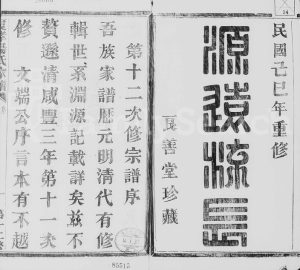 民國己巳年重修
源遠流長
長善堂珍藏
第十二次修宗譜序
吾族家譜歷元明清代有修
輯世系淵源記載詳矣茲不
贅遜清咸豐三年第十一次
修 文端公序言本有不越
85512